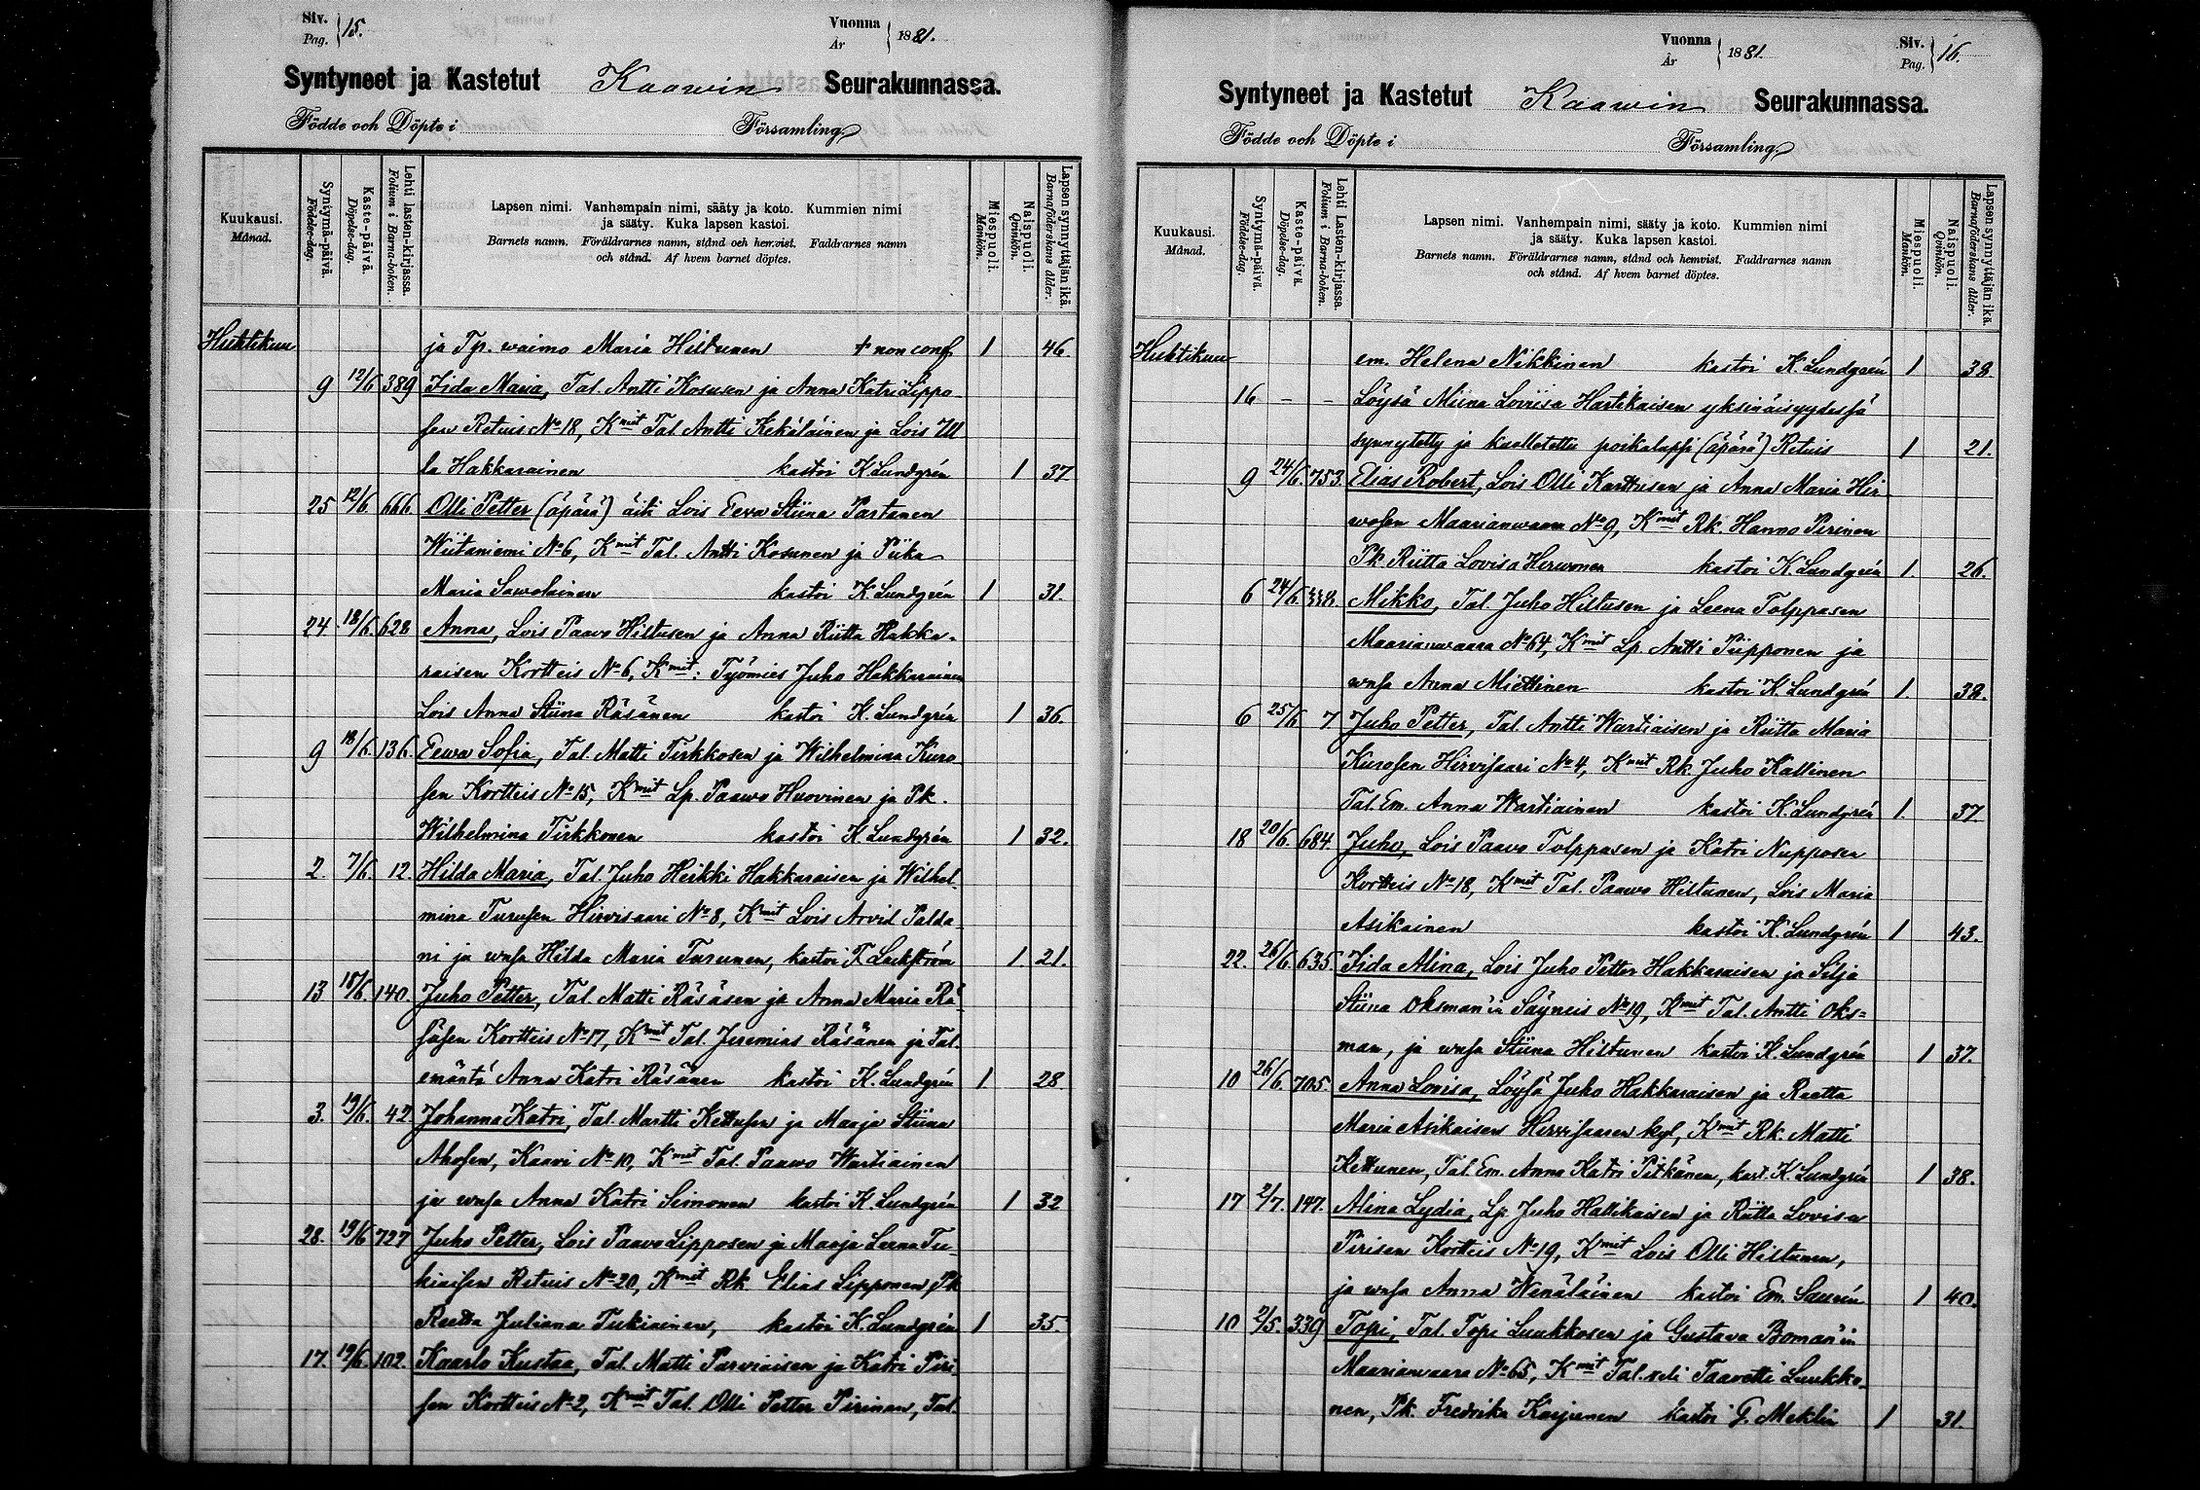 Siv. Pag. 15. Vuonna År 1881.
Syntyneet ja Kastetut Kaawin Seurakunnassa.
Födde och Döpte i Församling
Kuukausi. Månad.
Syntymä-päivä. Födelse-dag.
Kaste-päivä. Döpelse-dag.
Lehti lasten-kirjassa. Folium i Barna-boken.
Lapsen nimi. Vanhempain nimi, sääty ja koto. Kummien nimi
ja sääty. Kuka lapsen kastoi.
Barnets namn. Föräldrarnes namn, stånd och hemvist. Faddrarnes namn
och stånd. Af hvem barnet döptes.
Miespuoli. Mankön.
Naispuoli. Qvinkön.
Lapsen synnyttäjän ikä. Barnaföderskans ålder.
Huhtikuu ja Tp. waimo Maria Hiltunen + non conf. 1 46.
9 12/6 389 Iida Maria, Tal. Antti Kosusen ja Anna Katri Lippo-
sen Retuis No 18, Kmit Tal Antti Kekäläinen ja Lois Ul
la Hakkarainen kastoi K Lundgrén 1 37
25 12/6 666 Olli Petter (äpärä) äiti Lois Eeva Stiina Partanen
Wiitaniemi No 6, Kmit Tal. Antti Kosunen ja Piika
Maria Sawolainen kastoi K Lundgrén 1 31.
24 18/6. 628 Anna, Lois Paavo Hiltusen ja Anna Riitta Hakka-
raisen Kortteis No 6, Kmit: Työmies Juho Hakkarainen
Lois Anna Stiina Räsänen kastoi K. Lundgrén 1 36.
9 18/6. 136. Eewa Sofia, Tal. Matti Tirkkosen ja Wilhelmina Kuro
sen Kortteis No 15, Kmit Lp. Paawo Huovinen ja Pk.
Wilhelmina Tirkkonen kastoi K. Lundgrén 1 32.
2. 7/6. 12. Hilda Maria, Tal. Juho Heikki Hakkaraisen ja Wilhel
mina Turusen Hirvisaari No 8, Kmit Lois Arvid Palda-
ni ja wnsa Hilda Maria Turunen, kastoi F. Lackström 1. 21.
13 18/6. 140. Juho Petter, Tal. Matti Räsäsen ja Anna Maria Rä-
säsen Kortteis No 17, Kmit Tal. Jeremias Räsänen ja Tal.
emäntä Anna Katri Räsänen kastoi K. Lundgrén 1 28
3. 19/6. 42 Johanna Katri, Tal. Martti Kettusen ja Maaja Stiina
Ahosen, Kaavi No 10, Kmit Tal. Paawo Wartiainen
ja wnsa Anna Katri Simonen kastoi K. Lundgrén 1 32
28. 19/6 727 Juho Petter, Lois Paavo Lipposen ja Maaja Leena Tu-
kiaisen Retuis No 20, Kmit Rk. Elias Lipponen, Pk
Reetta Juliana Tukiainen, kastoi K. Lundgrén 1 35.
17. 19/6. 102. Kaarlo Kustaa, Tal. Matti Parviaisen ja Katri Piri-
sen Kortteis No 2, Kmit Tal. Olli Petter Pirinen, Tal.
Vuonna År 1881. Siv. Pag. 16.
Syntyneet ja Kastetut Kaawin Seurakunnassa.
Födde och Döpte i Församling
Kuukausi. Månad.
Syntymä-päivä. Födelse-dag.
Kaste-päivä. Döpelse-dag.
Lehti Lasten-kirjassa. Folium i Barna-boken.
Lapsen nimi. Vanhempain nimi, sääty ja koto. Kummien nimi
ja sääty. Kuka lapsen kastoi.
Barnets namn. Föräldrarnes namn, stånd och hemvist. Faddrarnes namn
och stånd. Af hvem barnet döptes.
Miespuoli. Mankön.
Naispuoli. Qvinkön.
Lapsen synnyttäjän ikä. Barnaföderskans ålder.
Huhtikuu em. Helena Nikkinen kastoi K. Lundgrén 1 38.
16 - - Löysä Miina Loviisa Hartikaisen yksinäisyydessä
synnytetty ja kuollutettu poikalapsi (äpärä) Retuis 1 21.
9 24/6. 753. Elias Robert, Lois Olli Karttusen ja Anna Maria Hir
wosen Maarianwaara No 9, Kmit Rk. Hanno Pirinen
Pk Riitta Lovisa Hirwonen kastoi K Lundgrén 1. 26.
6 24/6. 338. Mikko, Tal. Juho Hiltusen ja Leena Tolppasen
Maarianwaara No 64, Kmit Lp. Antti Piipponen ja
wnsa Anna Miettinen kastoi K. Lundgrén 1. 38.
6 25/6 7 Juho Petter, Tal. Antti Wartiaisen ja Riitta Maria
Kurosen Hirvisaari No 4, Kmit Rk. Juho Kallinen
Tal. Em. Anna Wartiainen kastoi K. Lundgrén 1. 37.
18 20/6. 684. Juho, Lois Paavo Tolppasen ja Katri Nupposen
Kortteis No 18, Kmit Tal. Paawo Hiltunen, Lois Maria
Asikainen kastoi K. Lundgrén 1 43.
22. 26/6. 635. Iida Alina, Lois Juho Petter Hakkaraisen ja Silja
Stiina Oksman'in Säyneis No 19, Kmit Tal. Antti Oks=
man, ja wnsa Stiina Hiltunen kastoi K. Lundgrén 1 37.
10 26/6. 705. Anna Lovisa, Löysä Juho Hakkaraisen ja Reetta
Maria Asikaisen Hirvisaaren kyl, Kmit Rk. Matti
Kettunen, Tal. Em. Anna Katri Pitkänen, kast. K. Lundgrén 1 38.
17 2/7. 147. Alina Lydia, Lp. Juho Hallikaisen ja Riitta Lovisa
Pirisen Kortteis No 19, Kmit Lois Olli Hiltunen,
ja wnsa Anna Wenäläinen kastoi Em. 1 40.
10 2/5. 339 Topi, Tal. Topi Luukkosen ja Gustava Boman'in
Maarianwaara No 65, Kmit Tal. veli Taavetti Luukko-
nen, Pk. Fredrika Karjunen kastoi G. Meklin 1 31.